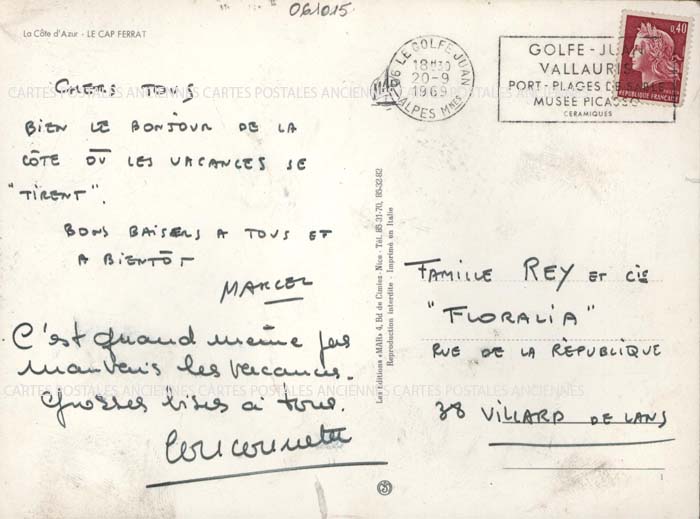 061015
La Côte d'Azur - LE CAP FERRAT
CHERS TOUS
BIEN LE BONJOUR DE LA
CÔTE OÙ LES VACANCES SE
"TIRENT".
BONS BAISERS A TOUS ET
A BIENTÔT
MARCEL
C'est quand même pas
mauvais les vacances.
Grosses bises à tous.
CARTES POSTALES ANCIENNES CARTES POSTALES ANCIENNES
CARTES POSTALES ANCIENNES CARTES POSTALES ANCIENNES
06 LE GOLFE JUAN
18H30
20-9
1969
ALPES MMES
GOLFE-JUAN
VALLAURIS
PORT-PLAGES DE SABLE
MUSÉE PICASSO
CERAMIQUES
0,40
REPUBLIQUE FRANCAISE
Les Editions «MAR» 4, Bd de Cimiez - Nice - Tél. 85-31-70, 85-32-82
Reproduction interdite - Imprimé en Italie
FAMILLE REY ET CIE
"FLORALIA"
RUE DE LA RÉPUBLIQUE
38 VILLARD DE LANS